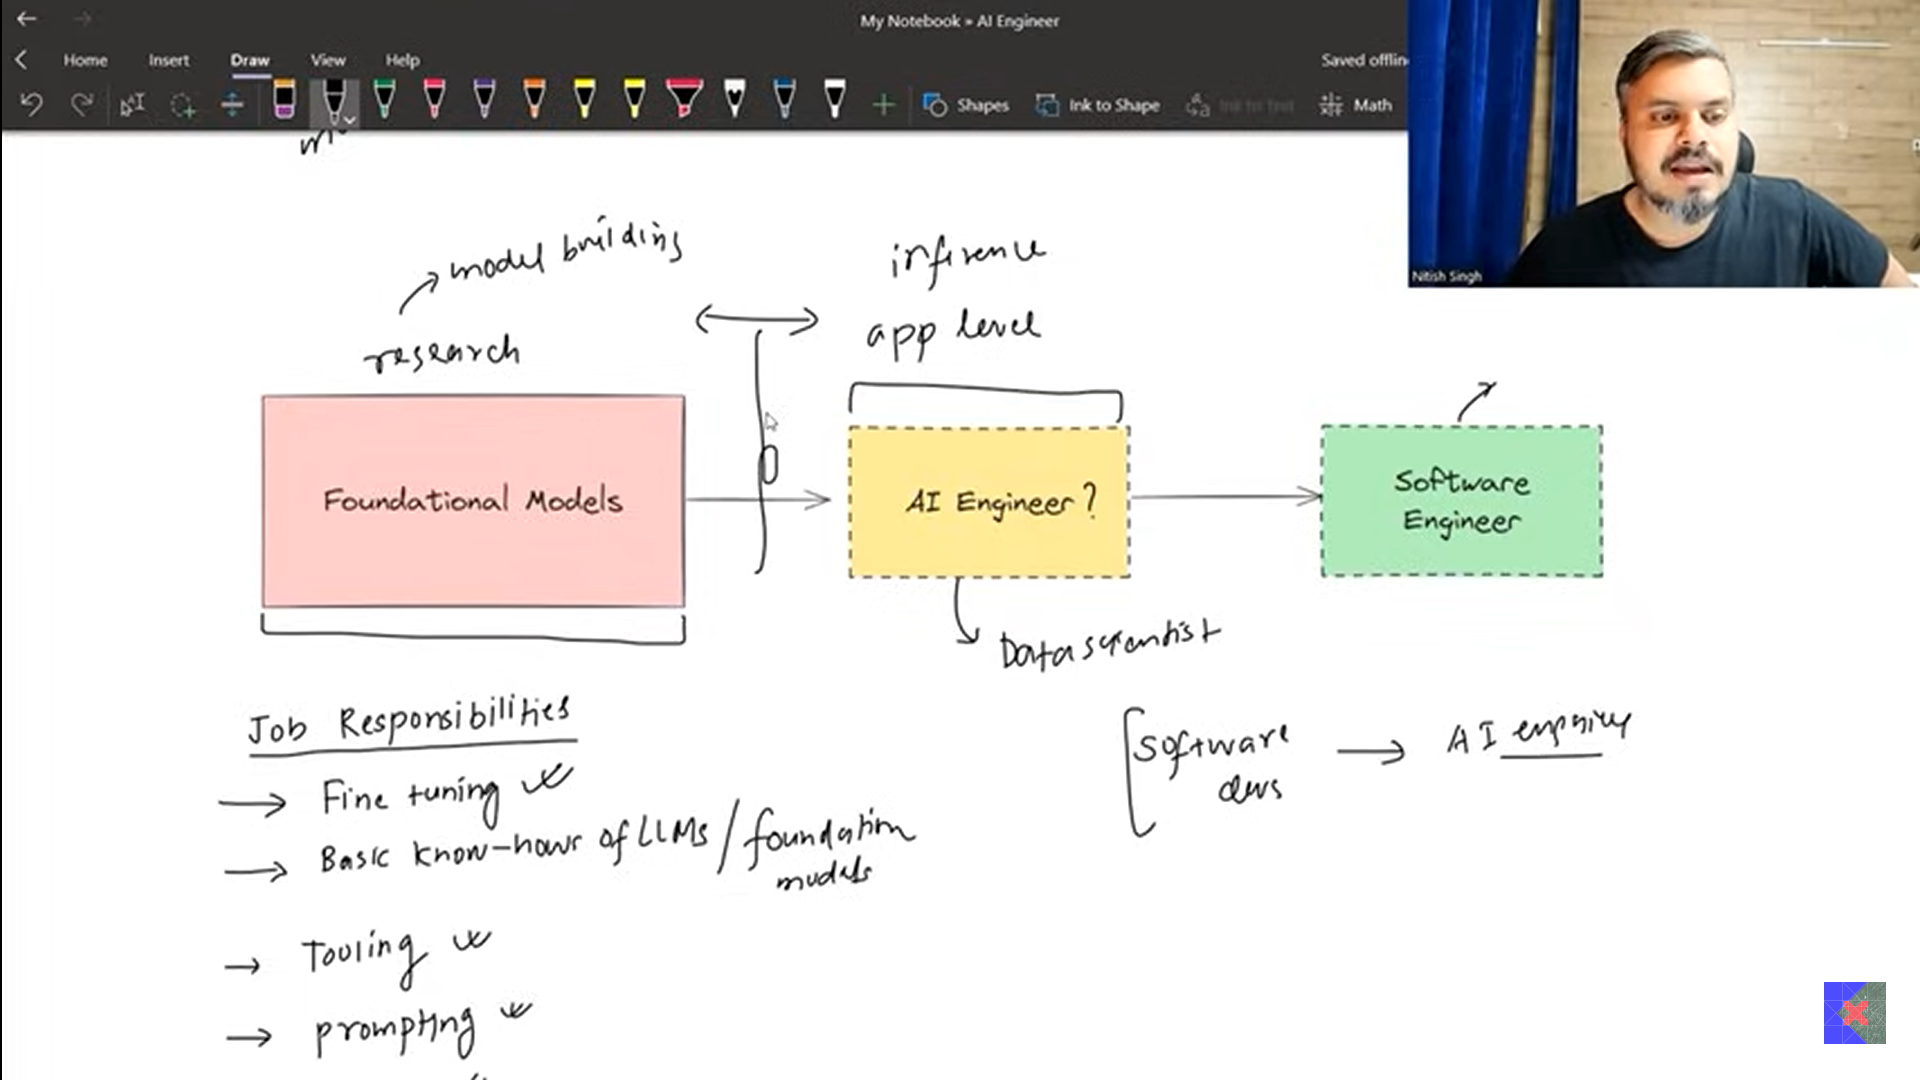 My Notebook » AI Engineer
Home Insert Draw View Help
Saved offlin
Shapes Ink to Shape Math
Nitish Singh
model building
research
inference
app level
Foundational Models
AI Engineer?
Software
Engineer
Data scientist
Job Responsibilities
Fine tuning
Basic know-hows of LLMs / foundation
models
Tooling
prompting
Software
devs
AI